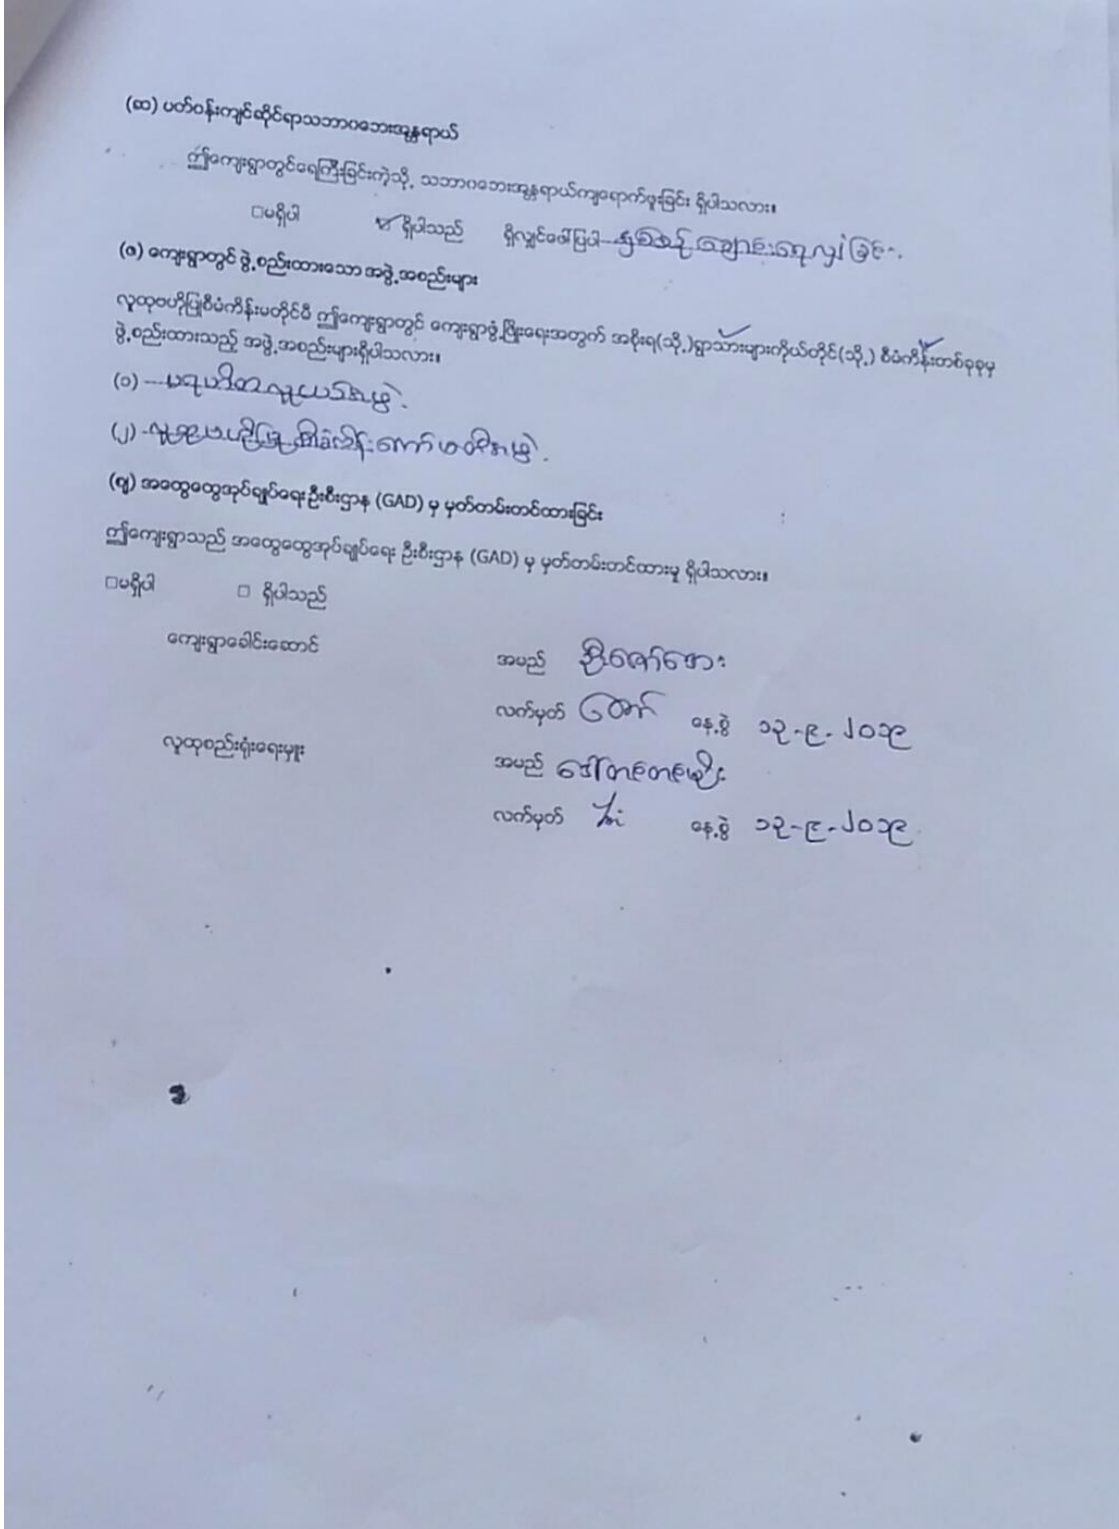 (ဆ) ပတ်ဝန်းကျင်ဆိုင်ရာသဘာဝဘေးအန္တရာယ်
ဤကျေးရွာတွင်ရေကြီးခြင်းကဲ့သို့ သဘာဝဘေးအန္တရာယ်ကျရောက်ဖူးခြင်း ရှိပါသလား။
□မရှိပါ ☑ ရှိပါသည် ရှိလျှင်ဖေါ်ပြပါ ချောင်းရေလျှံခြင်း
(ဇ) ကျေးရွာတွင် ဖွဲ့စည်းထားသော အဖွဲ့အစည်းများ
လူထုဗဟိုပြုစီမံကိန်းမတိုင်မီ ဤကျေးရွာတွင် ကျေးရွာဖွံ့ဖြိုးရေးအတွက် အစိုးရ(သို့)ရွာသားများကိုယ်တိုင်(သို့) စီမံကိန်းတစ်ခုခုမှ
ဖွဲ့စည်းထားသည့် အဖွဲ့အစည်းများရှိပါသလား။
(၁) ပရဟိတလူငယ်အဖွဲ့
(၂) လူထုဗဟိုပြုစီမံကိန်းကော်မတီအဖွဲ့
(ဈ) အထွေထွေအုပ်ချုပ်ရေးဦးစီးဌာန (GAD) မှ မှတ်တမ်းတင်ထားခြင်း
ဤကျေးရွာသည် အထွေထွေအုပ်ချုပ်ရေး ဦးစီးဌာန (GAD) မှ မှတ်တမ်းတင်ထားမှု ရှိပါသလား။
□မရှိပါ □ ရှိပါသည်
ကျေးရွာခေါင်းဆောင်
အမည် ဦးဇော်အေး
လက်မှတ် ဇော် နေ့စွဲ ၁၃-၉-၂၀၁၉
လူထုစည်းရုံးရေးမှူး
အမည်
လက်မှတ် နေ့စွဲ ၁၃-၉-၂၀၁၉